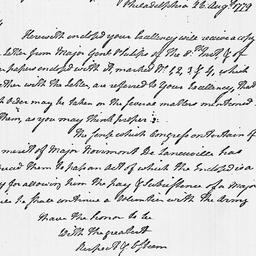 Philadelphia 26 Augt 1779
Herewith enclosed your Excellency will receive a copy
Letter from Major Genl Philips of the 8th Inst, & of
papers enclosed with it, marked No 1, 2, 3 & 4, which
with the Letter, are referred to your Excellency, that
order may be taken on the several matters mentioned
Them, as you may think proper
The sense which Congress entertain of
merit of Major Noirmont De Laneuville has
them to pass an Act of which the Enclosed is a
for allowing him the pay & Subsistence of a Major
he shall continue a Volunteer with the Army
I have the honor to be
With the greatest
Respect & Esteem